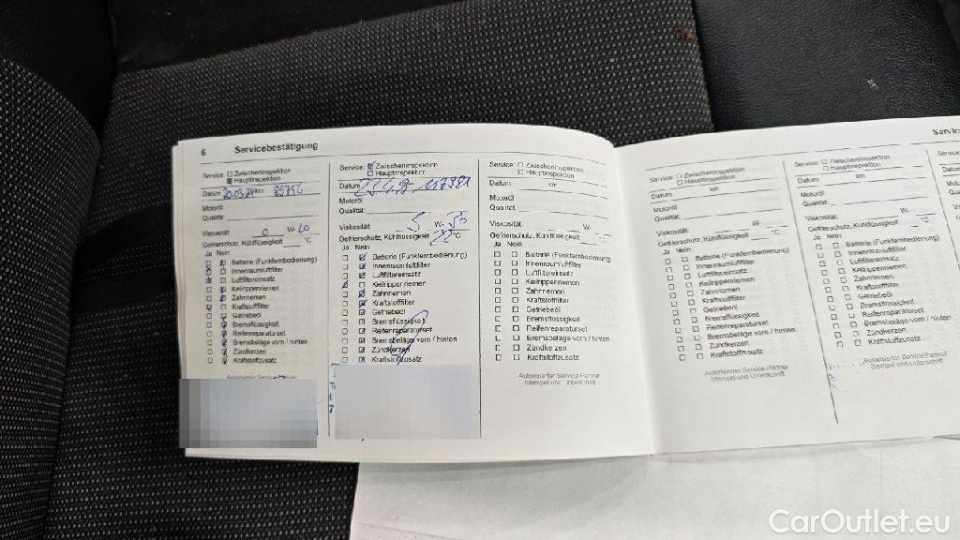 6 Servicebestätigung
Service: Zwischeninspektion
Hauptinspektion
Datum km
Motoröl
Qualität:
Viskosität W-
Gefrierschutz, Kühlflüssigkeit °C
Ja Nein
Batterie (Funkfernbedienung)
Innenraumluftfilter
Luftfiltereinsatz
Keilrippenriemen
Zahnriemen
Kraftstofffilter
Getriebeöl
Bremsflüssigkeit
Reifenreparaturset
Bremsbeläge vorn / hinten
Zündkerzen
Kraftstoffzusatz
Service: Zwischeninspektion
Hauptinspektion
Datum
Motoröl
Qualität:
Viskosität 5 W-
Gefrierschutz, Kühlflüssigkeit °C
Ja Nein
Batterie (Funkfernbedienung)
Innenraumluftfilter
Luftfiltereinsatz
Keilrippenriemen
Zahnriemen
Kraftstofffilter
Getriebeöl
Bremsflüssigkeit
Reifenreparaturset
Bremsbeläge vorn / hinten
Zündkerzen
Kraftstoffzusatz
Service: Zwischeninspektion
Hauptinspektion
Datum km
Motoröl
Qualität:
Viskosität W-
Gefrierschutz, Kühlflüssigkeit °C
Ja Nein
Batterie (Funkfernbedienung)
Innenraumluftfilter
Luftfiltereinsatz
Keilrippenriemen
Zahnriemen
Kraftstofffilter
Getriebeöl
Bremsflüssigkeit
Reifenreparaturset
Bremsbeläge vorn / hinten
Zündkerzen
Kraftstoffzusatz
Autorisierter Service-Partner
Stempel und Unterschrift
Service: Zwischeninspektion
Hauptinspektion
Datum km
Motoröl
Qualität:
Viskosität W-
Gefrierschutz, Kühlflüssigkeit °C
Ja Nein
Batterie (Funkfernbedienung)
Innenraumluftfilter
Luftfiltereinsatz
Keilrippenriemen
Zahnriemen
Kraftstofffilter
Getriebeöl
Bremsflüssigkeit
Reifenreparaturset
Bremsbeläge vorn / hinten
Zündkerzen
Kraftstoffzusatz
Autorisierter Service-Partner
Stempel und Unterschrift
Service: Zwischeninspektion
Hauptinspektion
Datum km
Motoröl
Qualität:
Viskosität W-
Gefrierschutz, Kühlflüssigkeit °C
Ja Nein
Batterie (Funkfernbedienung)
Innenraumluftfilter
Luftfiltereinsatz
Keilrippenriemen
Zahnriemen
Kraftstofffilter
Getriebeöl
Bremsflüssigkeit
Reifenreparaturset
Bremsbeläge vorn / hinten
Zündkerzen
Kraftstoffzusatz
Autorisierter Service-Partner
Stempel und Unterschrift
CarOutlet.eu